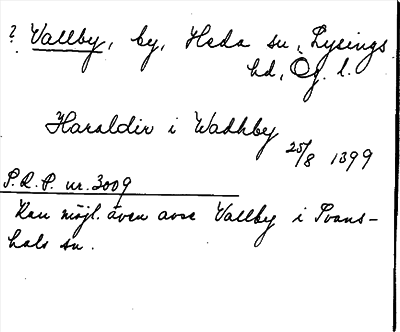 ? Vallby, by, Heda sn, Lysings
hd, Ög. l.
Haraldir i Wadhby
25/8 1399
S.R.P. nr. 3009
Kan möjl. även avse Vallby i Svans-
hals sn.